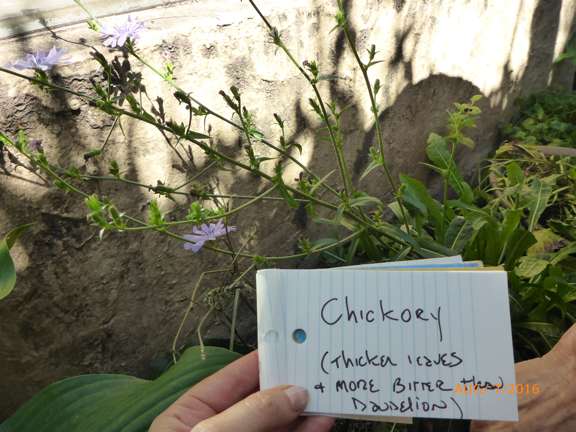 Chickory
(Thicker leaves
+ more bitter than
Dandelion)
AUG 7 2016